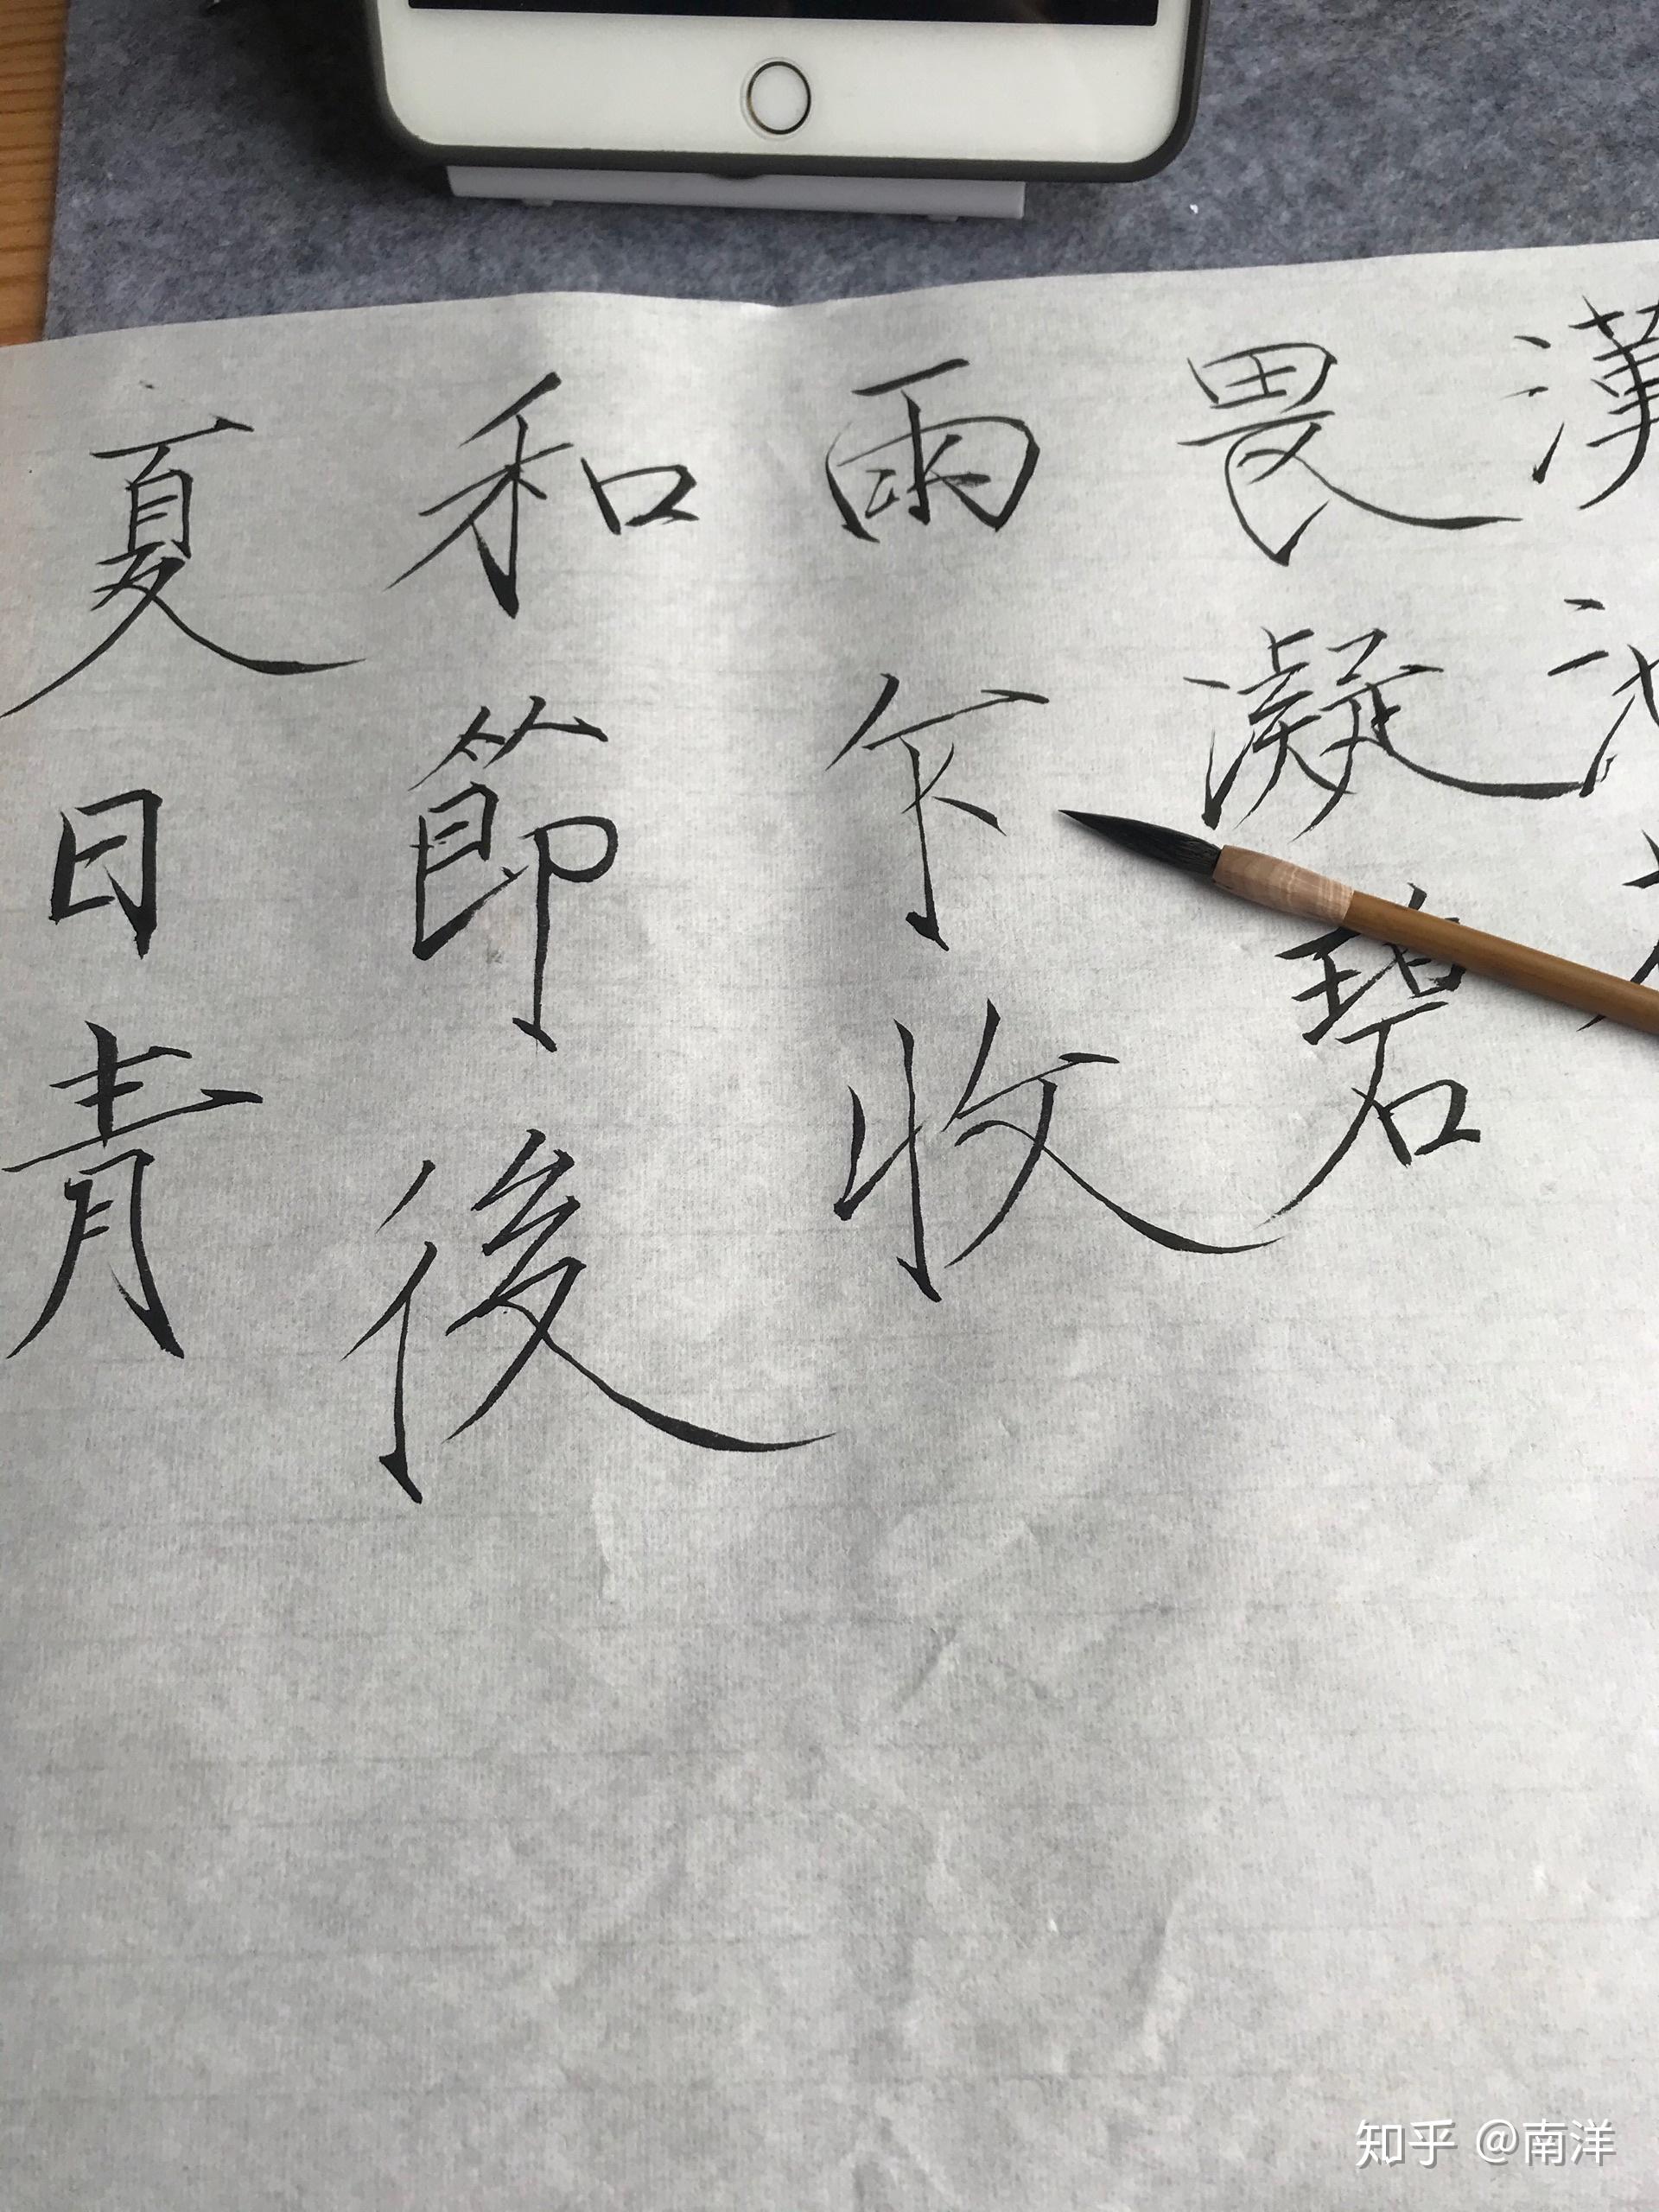 漢
畏凝碧
雨乍收
和節後
夏日青
知乎 @南洋